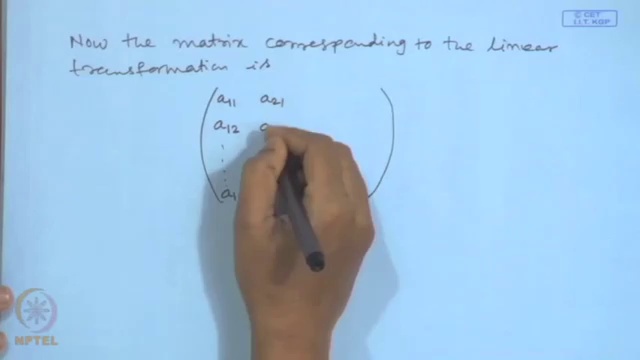 © CET
I.I.T. KGP
Now the matrix corresponding to the linear
transformation is
a11 a21
a12 a
a1
NPTEL